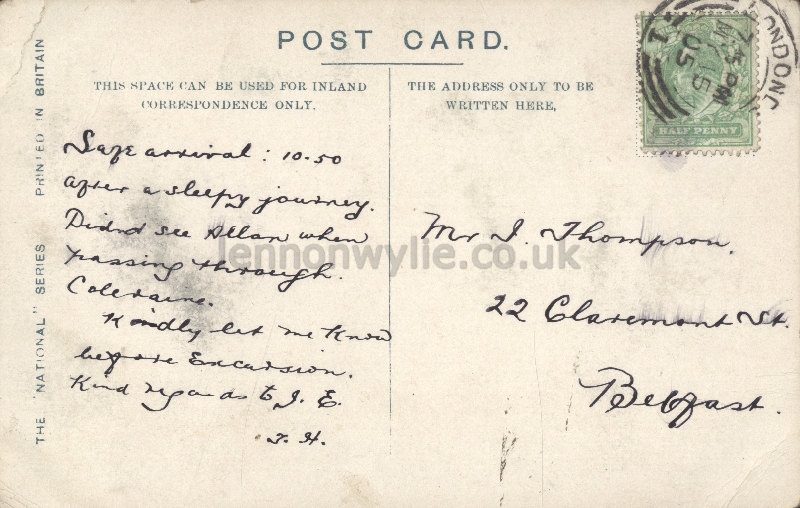 POST CARD.
THIS SPACE CAN BE USED FOR INLAND
CORRESPONDENCE ONLY.
THE ADDRESS ONLY TO BE
WRITTEN HERE,
HALF PENNY
THE "NATIONAL" SERIES PRINTED IN BRITAIN
Safe arrival: 10.50
after a sleepy journey.
Didnt see Allan when
passing through
Coleraine.
Kindly let me know
before Excursion.
Kind regards to J. E.
J. H.
Mr J. Thompson.
22 Claremont St.
Belfast.
lennonwylie.co.uk